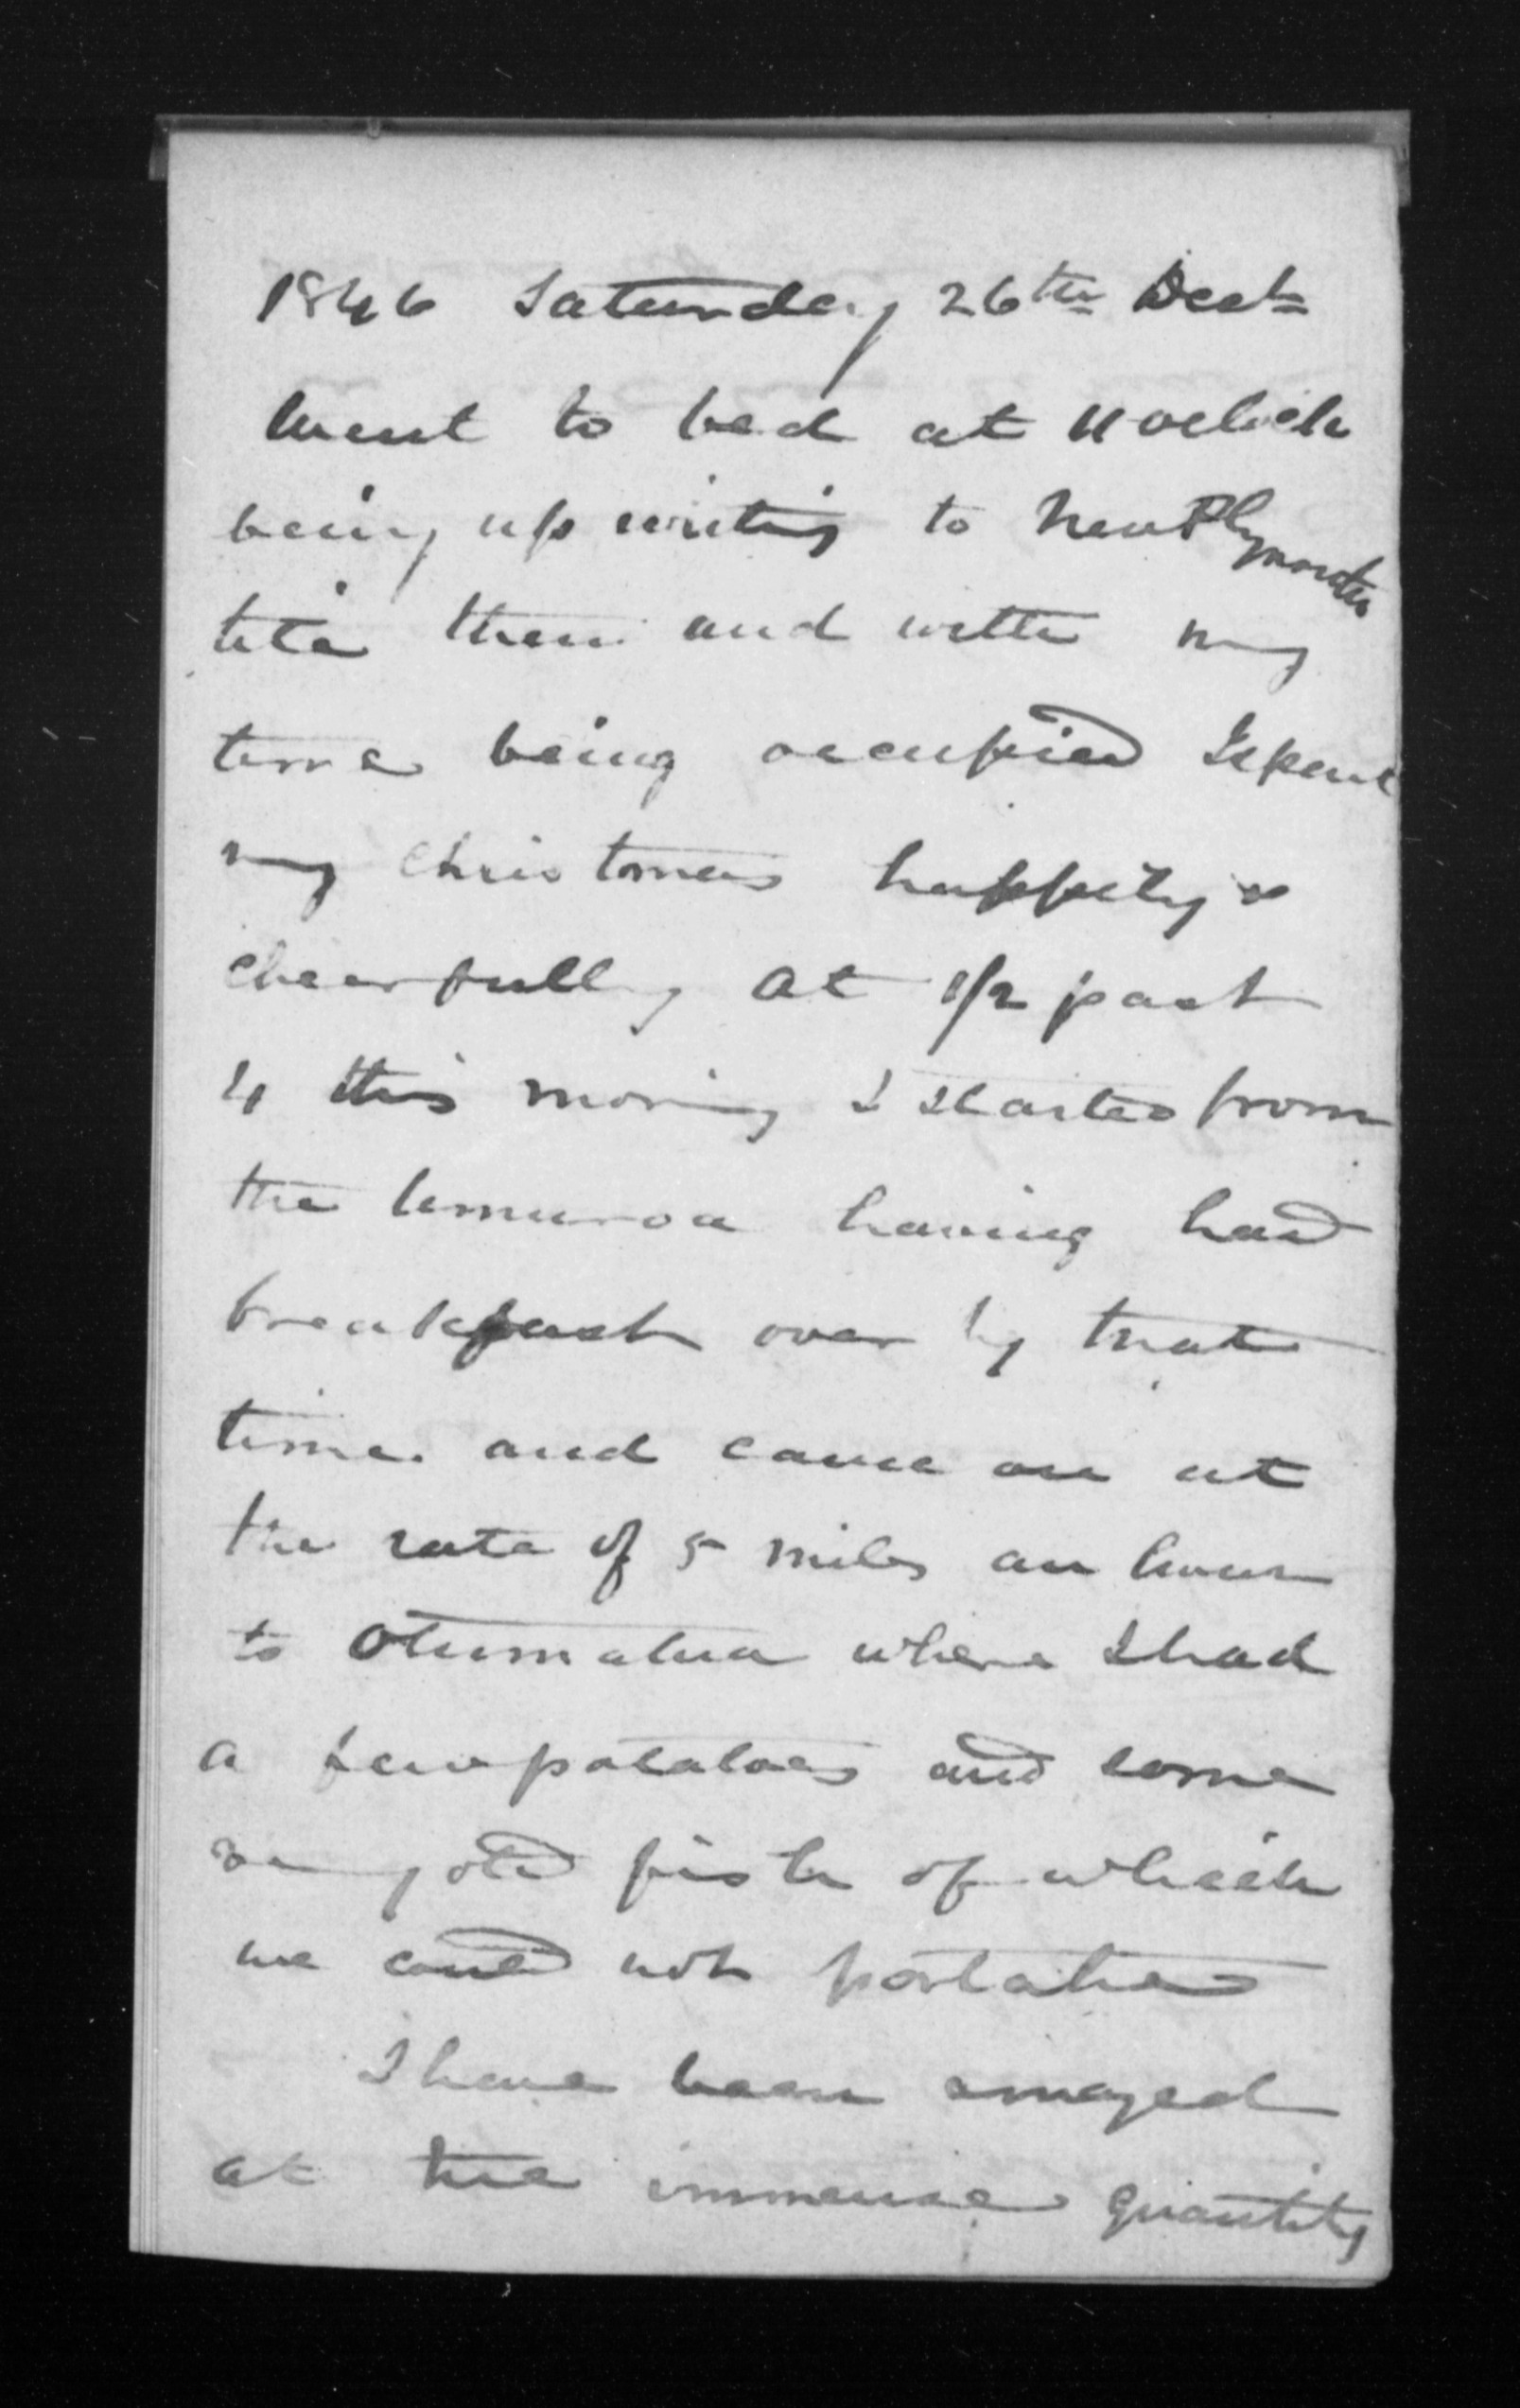 1846 Saturday 26th Decr
Went to bed at 11 oclock
being up writing to New Plymouth
till then and with my
time being occupied I spent
my Christmas happily &
cheerfully at 1/2 past
4 this morning I started from
the Umuroa having had
breakfast over by that
time and came on at
the rate of 5 miles an hour
to Otumatua where I had
a few potatoes and some
very old fish of which
we could not partake
I have been amazed
at the immense quantity